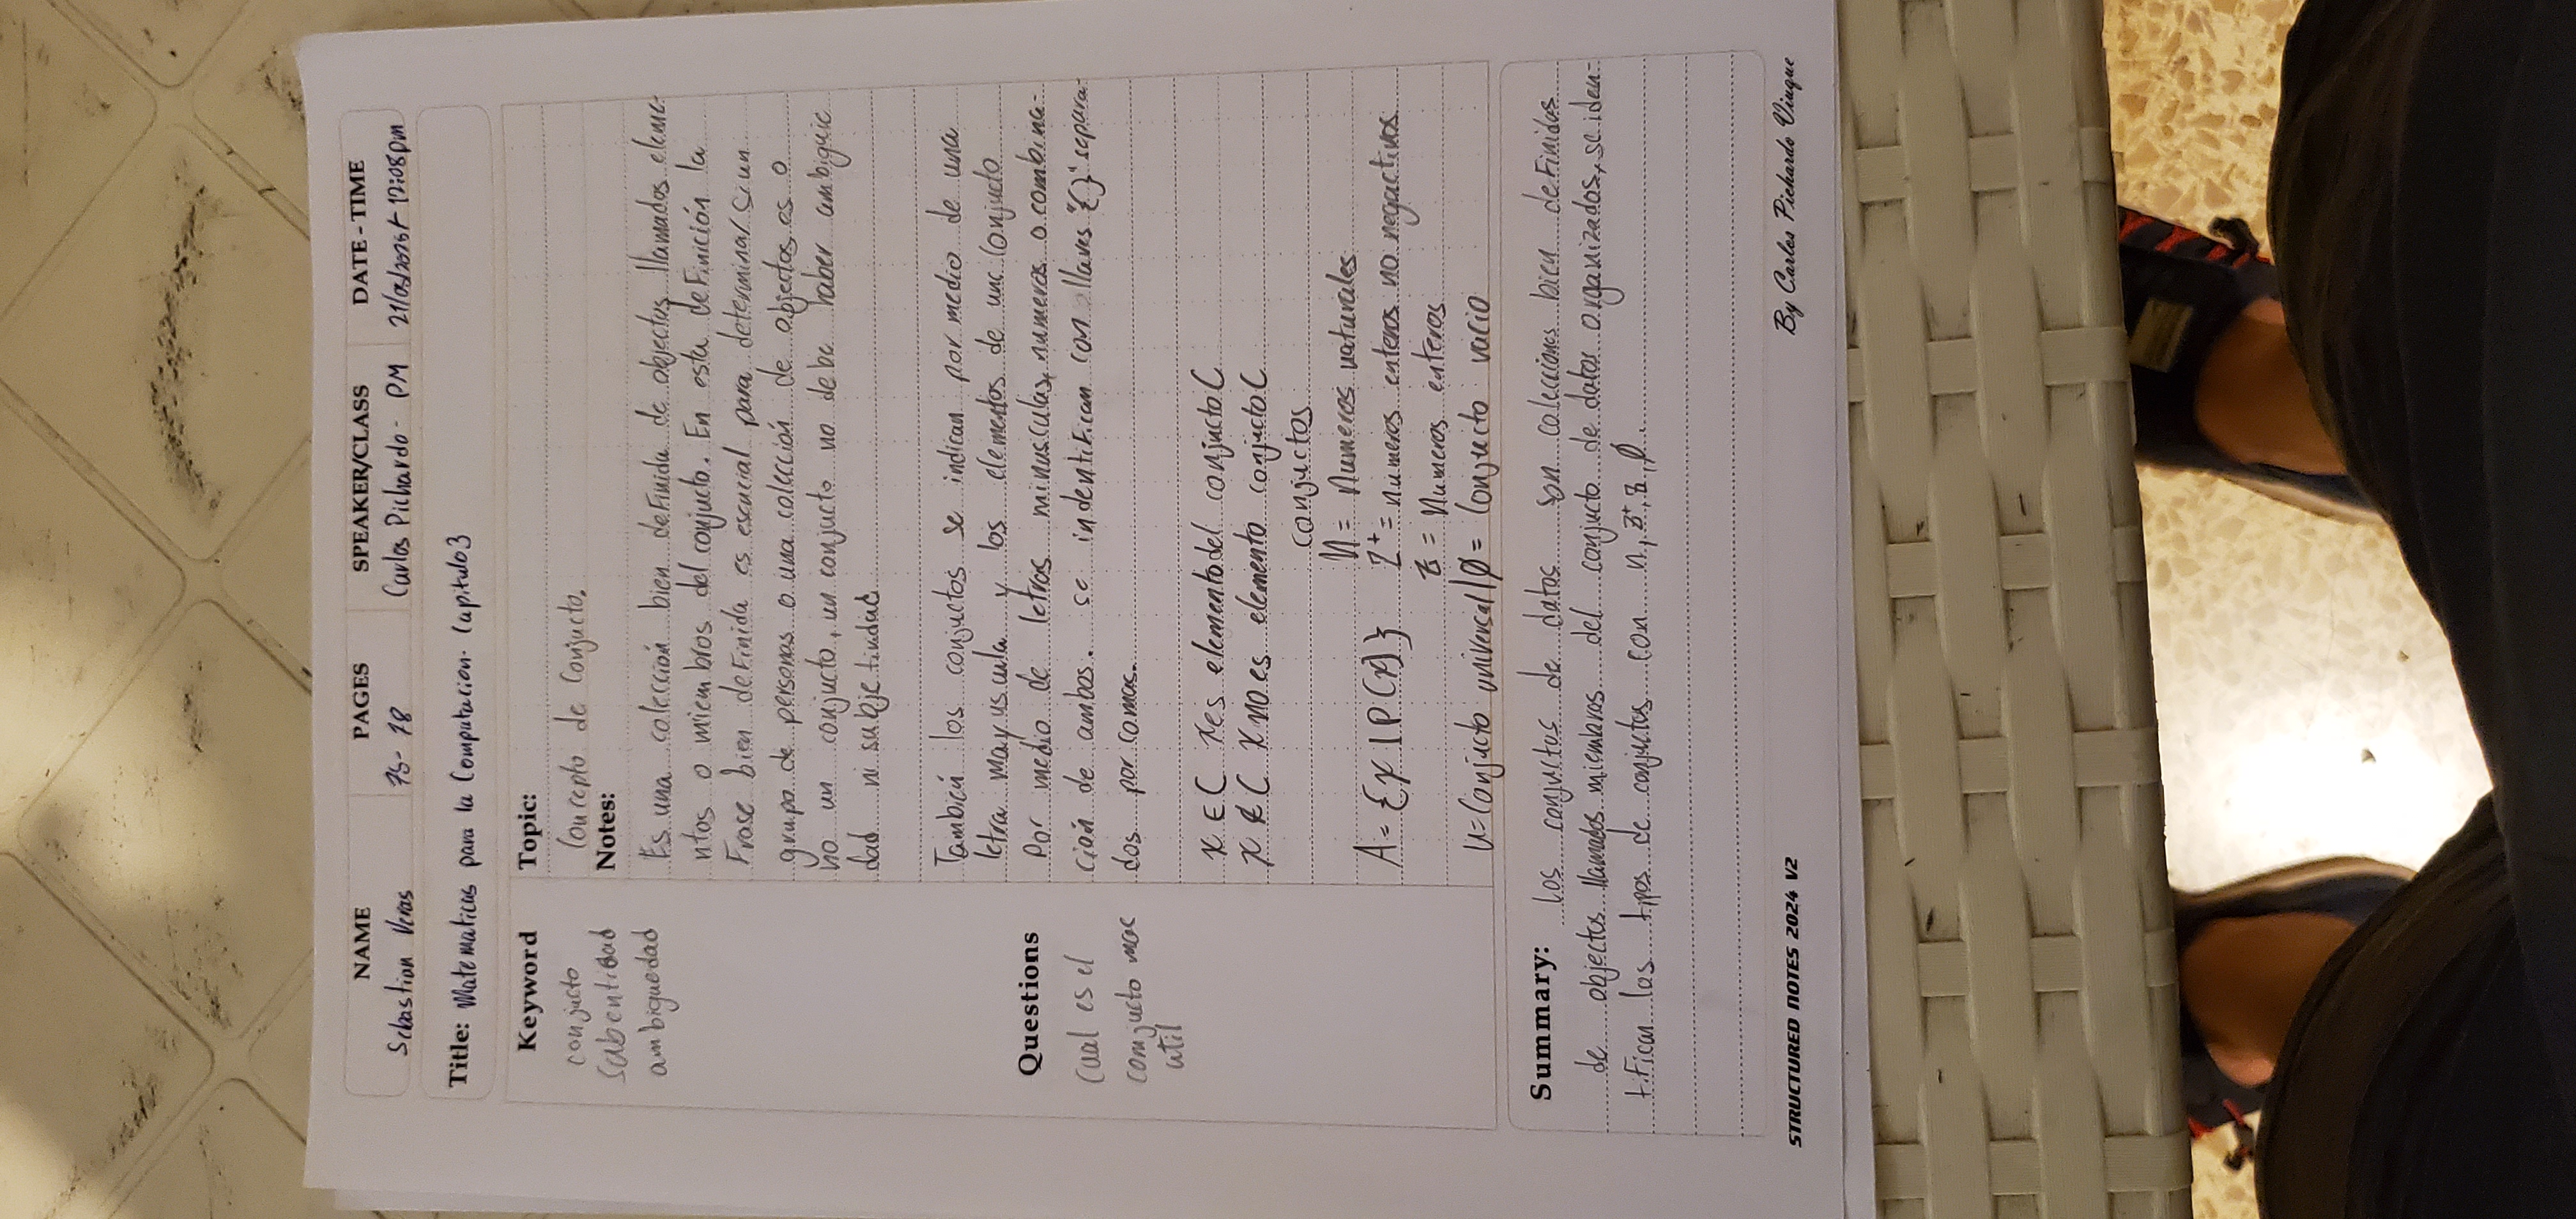 NAME PAGES SPEAKER/CLASS DATE-TIME
Sebastian Veras 75-78 Carlos Pichardo - PM 21/05/2025 12:08pm
Title: Matematicas para la Computacion. Capitulo 3
Keyword
conjucto
Sabentidad
ambiguedad
Topic:
Concepto de Conjucto.
Notes:
Es una colección bien definida de objectos llamados eleme-
ntos o miembros del conjucto. En esta definición la
Frase bien definida es esencial para determinar si un
grupo de personas o una colección de objectos es o
no un conjucto, un conjucto no debe haber ambigüe
dad ni subjetividad
También los conjuctos se indican por medio de una
letra mayuscula y los elementos de unc Conjucto
Por medio de letras minusculas, numeros o combina-
ción de ambos. se indentifican con llaves "{}" separa-
dos por comas.
Questions
Cual es el
comjucto mas
util
x ∈ C x es elemento del conjucto C
x ∉ C x no es elemento conjucto C
conjuctos
N = Numeros naturales
A = {x | P(x)} Z+ = numeros enteros no negactivos
Z = Numeros enteros
U = Conjucto universal | Ø = Conjucto vacio
Summary: Los conjuctos de datos son colecciones bien definidas
de objectos llamados miembros del conjucto de datos organizados, se iden-
tifican los tipos de conjuctos con n, Z+, Z, Ø.
STRUCTURED NOTES 2024 V2 By Carlos Pichardo Viuque